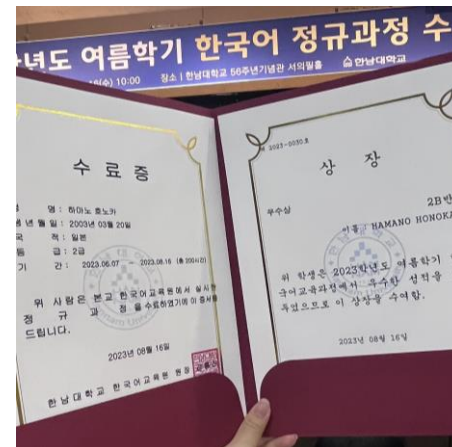 년도 여름학기 한국어 정규과정 수
(수) 10:00 장소 | 한남대학교 56주년기념관 서의필홀 한남대학교
수 료 증
명 : 하마노 호노카
생 년 월 일 : 2003년 03월 20일
국 적 : 일본
등 급 : 2급
기 간 : 2023.06.07 ~ 2023.08.16 (총 200시간)
위 사람은 본교 한국어교육원에서 실시한
정 규 과 정 을 수료하였기에 이 증서를
드립니다.
2023년 08월 16일
한남대학교 한국어교육원 원장
제 2023-0030호
상 장
우수상
2B반
이름 : HAMANO HONOKA
위 학생은 2023학년도 여름학기
국어교육과정에서 우수한 성적을
두었으므로 이 상장을 수여함.
2023년 08월 16일